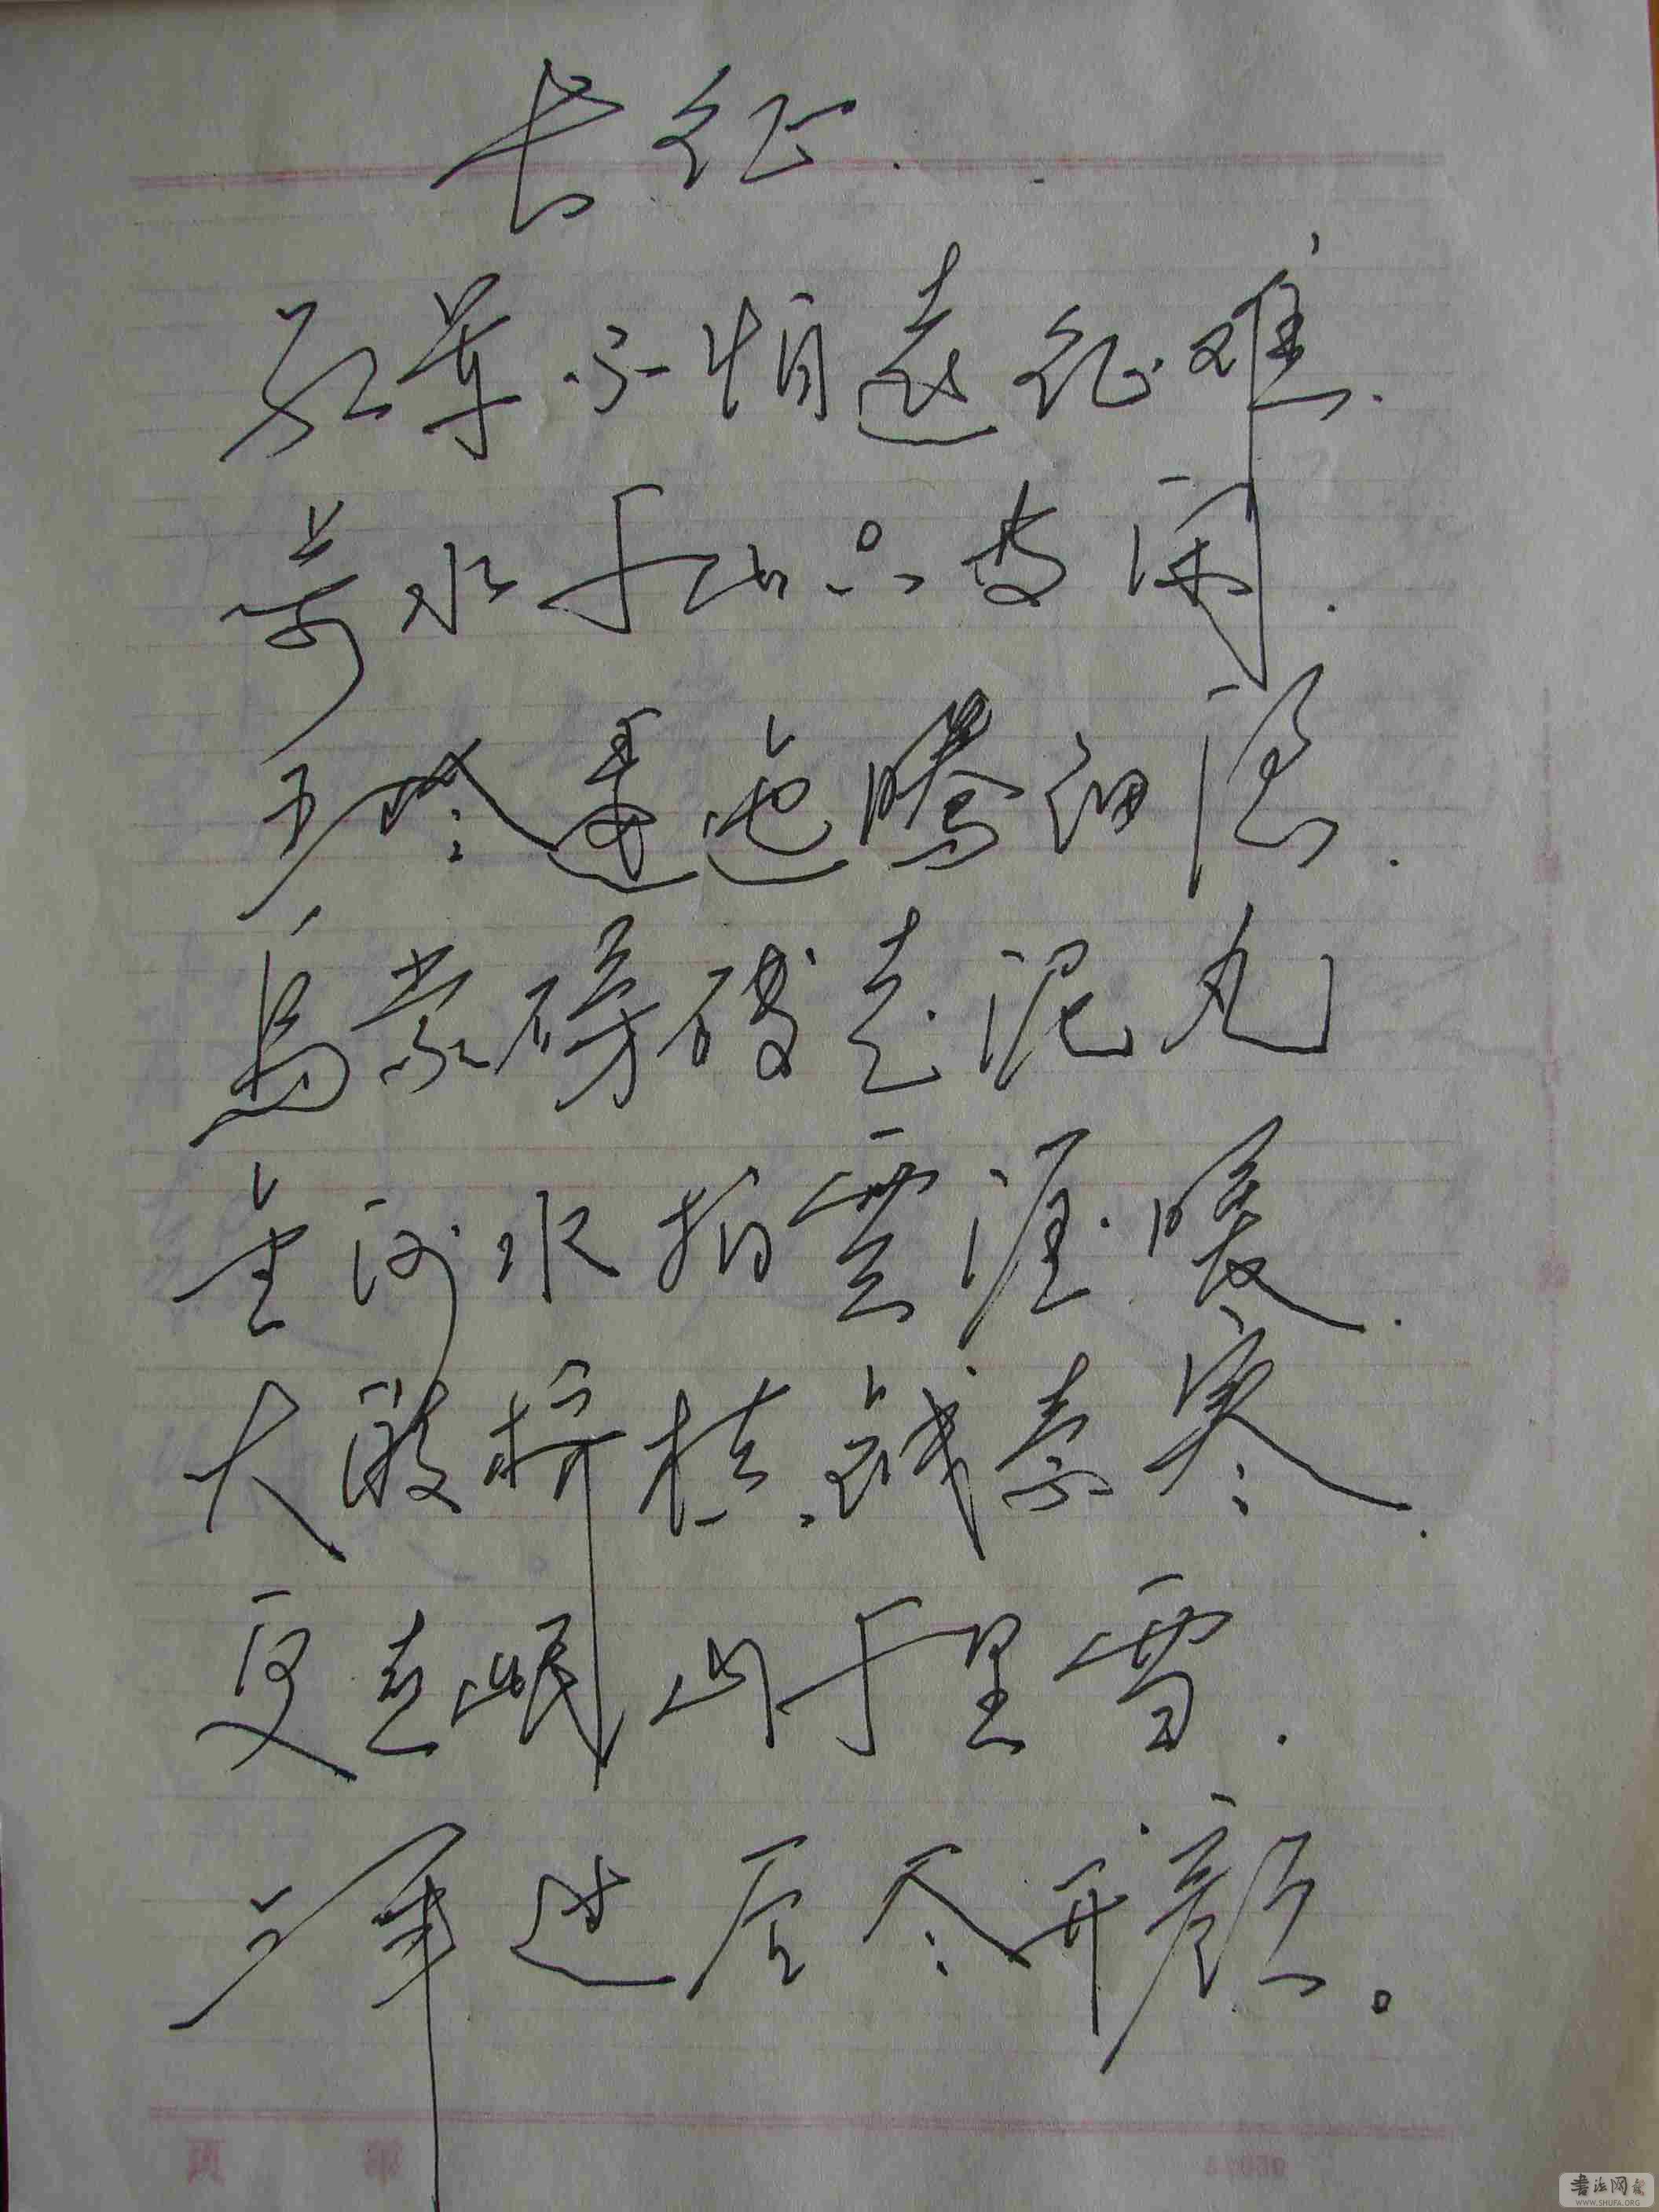 长征.
红军不怕遠征难.
萬水千山只等闲.
五岭逶迤腾细浪.
乌蒙磅礴走泥丸
金沙水拍雲涯暖.
大渡桥横铁索寒.
更喜岷山千里雪.
三军过后尽开颜。
書法网
WWW.SHUFA.ORG